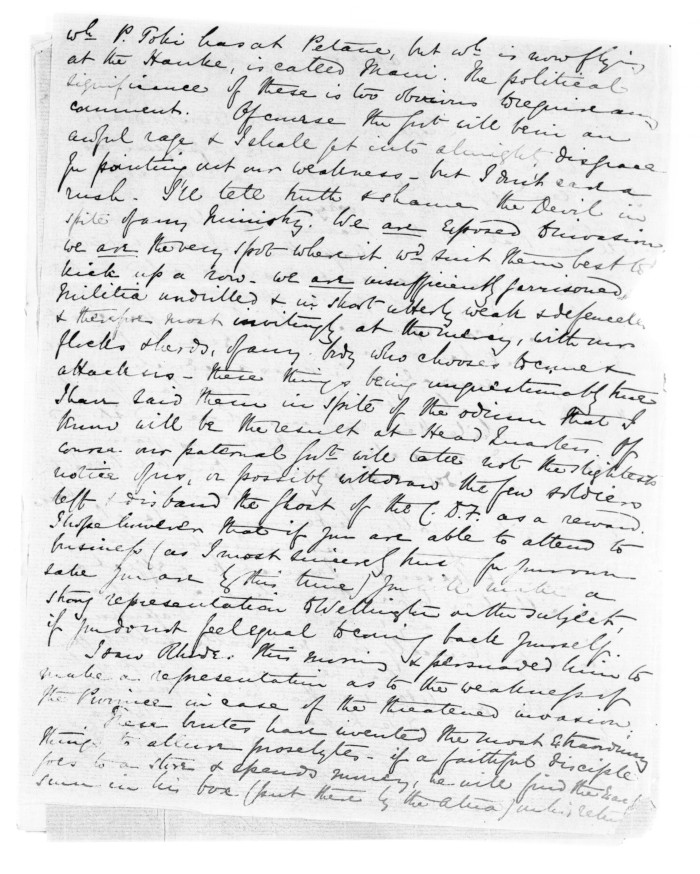 wh P. Toki has at Petane, but wh is now flying
at the Hauke, is called Maui. The political
significance of these is too obvious to require any
comment. Of course the Govt will be in an
awful rage & I shall get into almighty disgrace
for pointing out our weakness - but I don't care a
rush. I'll tell truth & shame the Devil in
spite of any Ministry. We are exposed to invasion
we are the very spot where it wd suit them best to
kick up a row - we are insufficiently garrisoned,
Militia undrilled & in short utterly weak & defenceless
& therefore most invitingly at the mercy, with our
flocks & herds, of any body who chooses to come &
attack us - these things being unquestionably true
I have said them in spite of the odium that I
know will be the result at Head Quarters. Of
course our paternal Govt will take not the slightest
notice of us, or possibly withdraw the few soldiers
left & disband the Ghost of the C.D.F. as a reward.
I hope however that if you are able to attend to
business (as I most sincerely trust for your own
sake you are by this time) you will make a
strong representation to Wellington on the subject,
if you do not feel equal to coming back yourself.
I saw Rhodes this morning & persuaded him to
make a representation as to the weakness of
the Province in case of the threatened invasion.
These brutes have invented the most extraordinary
things to allure proselytes - if a faithful disciple
goes to a store & spends money, he will find the exact
sum in his box (put there by the Atua) on his return